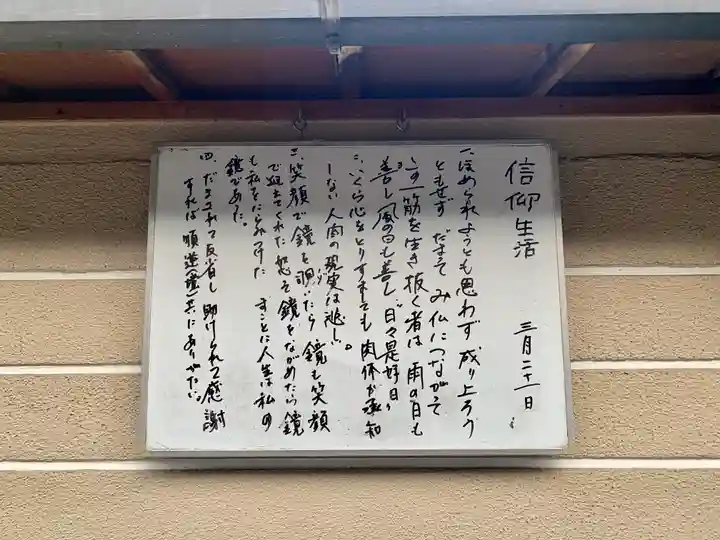 信仰生活　三月二十一日
一、ほめられようとも思わず 成り上ろう
ともせず だまって み仏につながって
この一筋を生き抜く者は 雨の日も
善し 風の日も善し 日々是好日
二、いくら心をとりすましても 肉体が承知
しない 人間の現実は悲し。
三、笑顔で鏡を覗いたら 鏡も笑顔
で迎えてくれた 怒って鏡をながめたら 鏡
も私をにらみつけた まことに人生は私の
鏡であった。
四、だまされて反省し 助けられて感謝
すれば 順逆(境)共にありがたい。